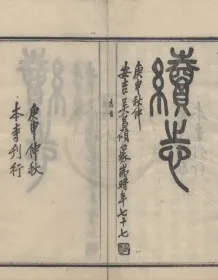 續志
庚申秋仲
安吉吳昌碩篆耑時年七十七
庚申仲秋
本寺刊行